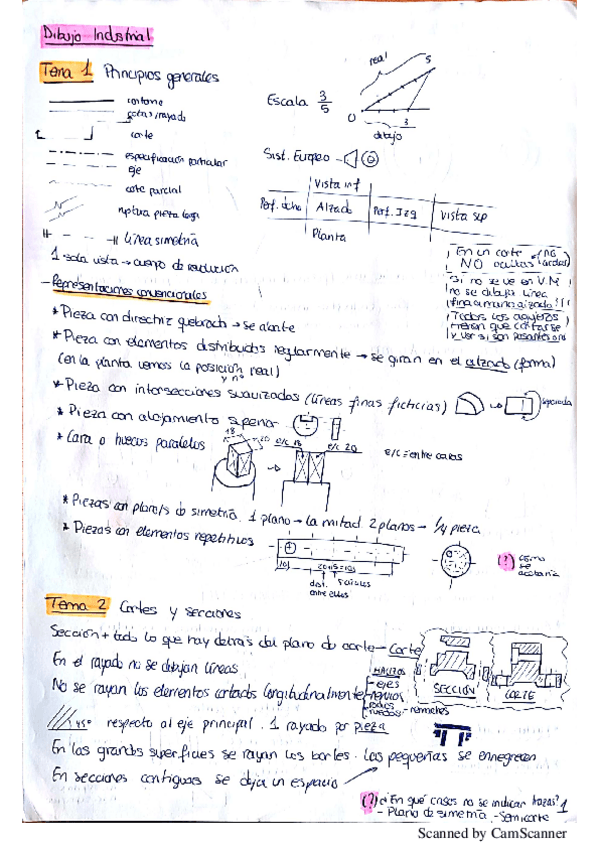 Dibujo Industrial
Tema 1 Principios generales
contorno
cotas/rayado
corte
especificación particular
eje
corte parcial
ruptura pieza larga
Línea simetría
1 sola vista → cuerpo de revolución
Escala 3/5
real
5
0
3
dibujo
Sist. Europeo
Vista inf
Perf. dcho Alzado Perf. Izq Vista sup
Planta
En un corte
NO ocultas
Si no se ve en V.M
no se dibuja línea
fina
Todos los agujeros
tienen que cortarse
y ver si son pasantes o no
- Representaciones convencionales
* Pieza con directriz quebrada → se abate
* Pieza con elementos distribuidos regularmente → se giran en el alzado (forma)
(en la planta vemos la posición real)
y nº
* Pieza con intersecciones suavizadas (líneas finas ficticias)
* Pieza con alojamiento
* Cara o huecos paralelos
18
20
e/c 18
e/c 20
e/c = entre caras
* Piezas con planos de simetría. 1 plano → la mitad 2 planos → 1/4 pieza
* Piezas con elementos repetitivos
10
dist.
entre ellos
(?) cómo
se
acotaría
Tema 2 Cortes y secciones
Sección + todo lo que hay detrás del plano de corte - Corte
En el rayado no se dibujan líneas
No se rayan los elementos cortados longitudinalmente
MACIZOS
- ejes
- remaches
SECCIÓN
CORTE
45° respecto al eje principal. 1 rayado por pieza
En las grandes superficies se rayan los bordes. Las pequeñas se ennegrecen
En secciones contiguas se deja un espacio
(?) ¿En qué casos no se indican trazas?
- Plano de simetría - Semicorte
1
Scanned by CamScanner